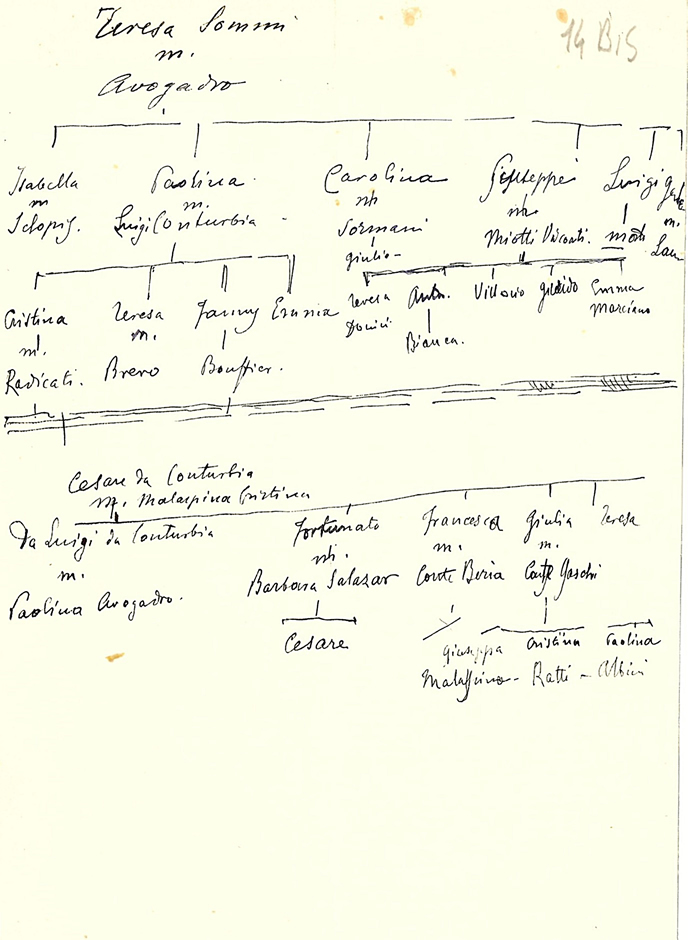 Teresa Sommi
14 BIS
m.
Avogadro
Isabella Paolina Carolina Giuseppe Luigi
m m. m m.
Sclopis. Luigi Conturbia Sormani Miotti Visconti.
Giulio
Cristina Teresa Fanny Emma Teresa Anto. Vittorio Guido Emma
m. m. Marciano
Radicati. Brero Bianca.
Cesare da Conturbia
m. Malaspina Cristina
Da Luigi da Conturbia Fortunato Francesca Giulia Teresa
m. m. m. m.
Paolina Avogadro. Barbara Salazar Conte Conte
Cesare Giuseppa Cristina Paolina
Malaspina - Ratti - Albini